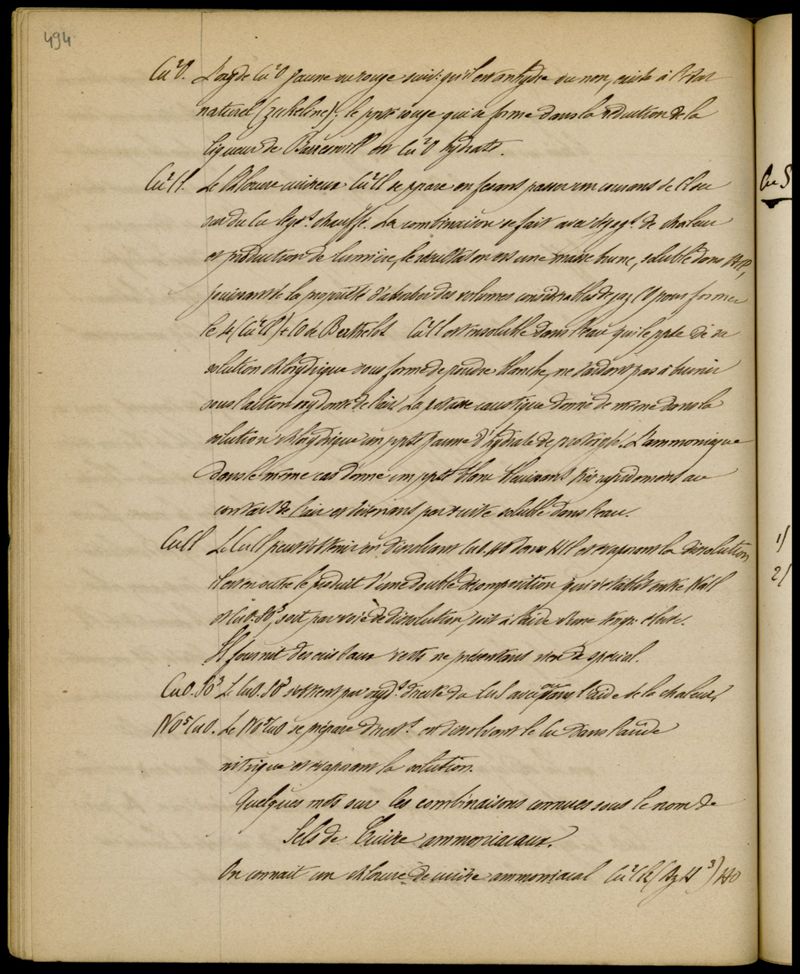 494
Cu²O. L'oxyde Cu²O jaune ou rouge suivt qu'il est anhydre ou non, existe à l'état
naturel (zukeline); le ppté rouge qui se forme dans la réduction de la
liqueur de Barreswill est Cu²O hydraté.
Cu²Cl. Le chlorure cuivreux Cu²Cl se prépare en fesant passer un courant de Cl sec
sur du Cu légt chauffé. La combinaison se fait avec dégagt de chaleur
et production de lumière, le résultat en est une masse brune, soluble dans HCl,
jouissant de la propriété d'absorber des volumes considérables de gaz CO pour former
le 4(Cu²Cl)+CO de Berthelot. Cu²Cl est insoluble dans l'eau qui le ppte de sa
solution chlorydrique sous forme de poudre blanche, ne tardant pas à brunir
sous l'action oxydante de l'air. La potasse caustique donne de même dans la
solution chlorydrique un ppté jaune d'hydrate de L'ammoniaque
dans le même cas donne un ppté blanc bleuissant très rapidement au
contact de l'air et devenant par suite soluble dans l'eau.
CuCl Le CuCl peut s'obtenir en dissolvant CuO,HO dans HCl et évaporant la dissolution
il est en outre le produit d'une double décomposition qui s'établit entre NaCl
et CuO.SO³, soit par voie de dissolution, soit à l'aide d'une tempre élevée.
Il fournit des cristaux verts ne présentant rien de spécial.
CuO.SO³ Le CuO.SO³ s'obtient par oxydt directe du CuS avec l'aide de la chaleur.
NO⁵CuO. Le NO⁵CuO se prépare directt en dissolvant le Cu dans l'acide
nitrique et évaporant la solution.
Quelques mots sur les combinaisons connues sous le nom de
Sels de Cuivre ammoniacaux.
On connait un chlorure de cuivre ammoniacal Cu²Cl(AzH³)HO
Cu S
1)
2)